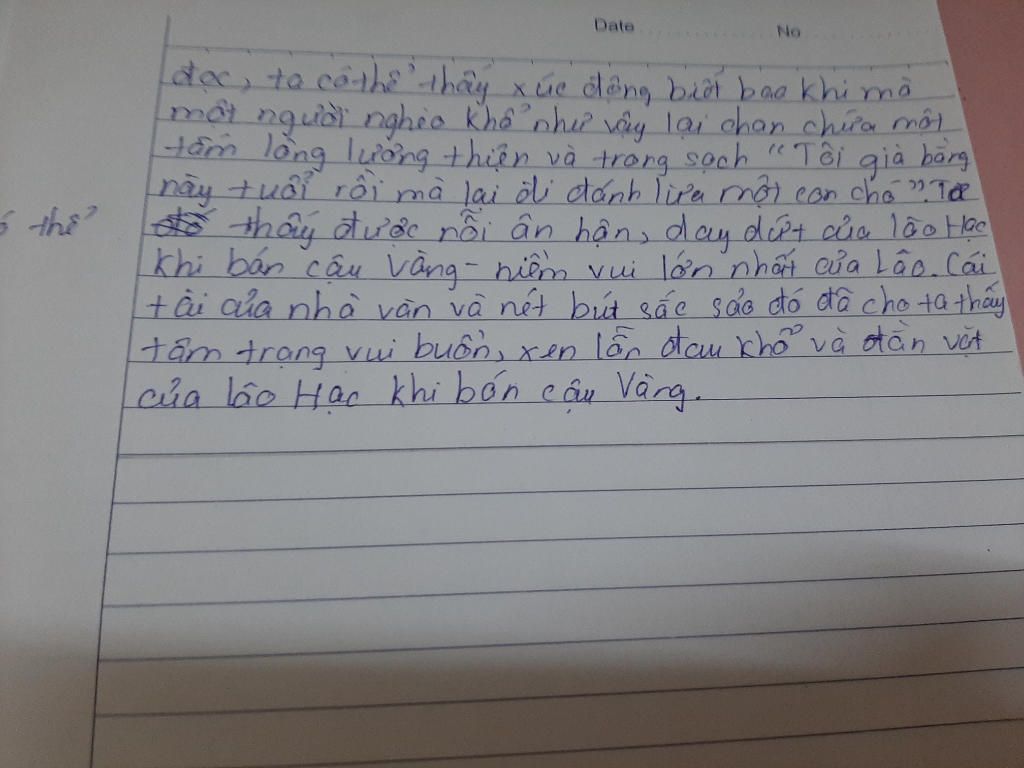 Date No
đọc, ta có thể thấy xúc động biết bao khi mà
một người nghèo khổ như vậy lại chan chứa một
tấm lòng lương thiện và trong sạch "Tôi già bằng
này tuổi rồi mà lại đi đánh lừa một con chó". Ta
thể thấy được nỗi ân hận, day dứt của lão Hạc
khi bán cậu Vàng - niềm vui lớn nhất của Lão. Cái
tài của nhà văn và nét bút sắc sảo đó đã cho ta thấy
tâm trạng vui buồn, xen lẫn đau khổ và dằn vặt
của lão Hạc khi bán cậu Vàng.